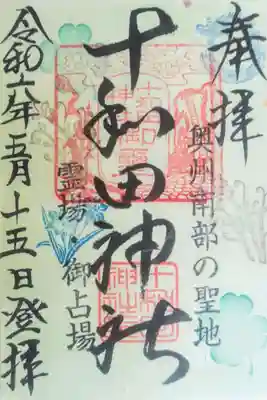 奉拝
奥州南部の聖地
十和田神社
霊場・御占場
令和六年五月十五日登拝